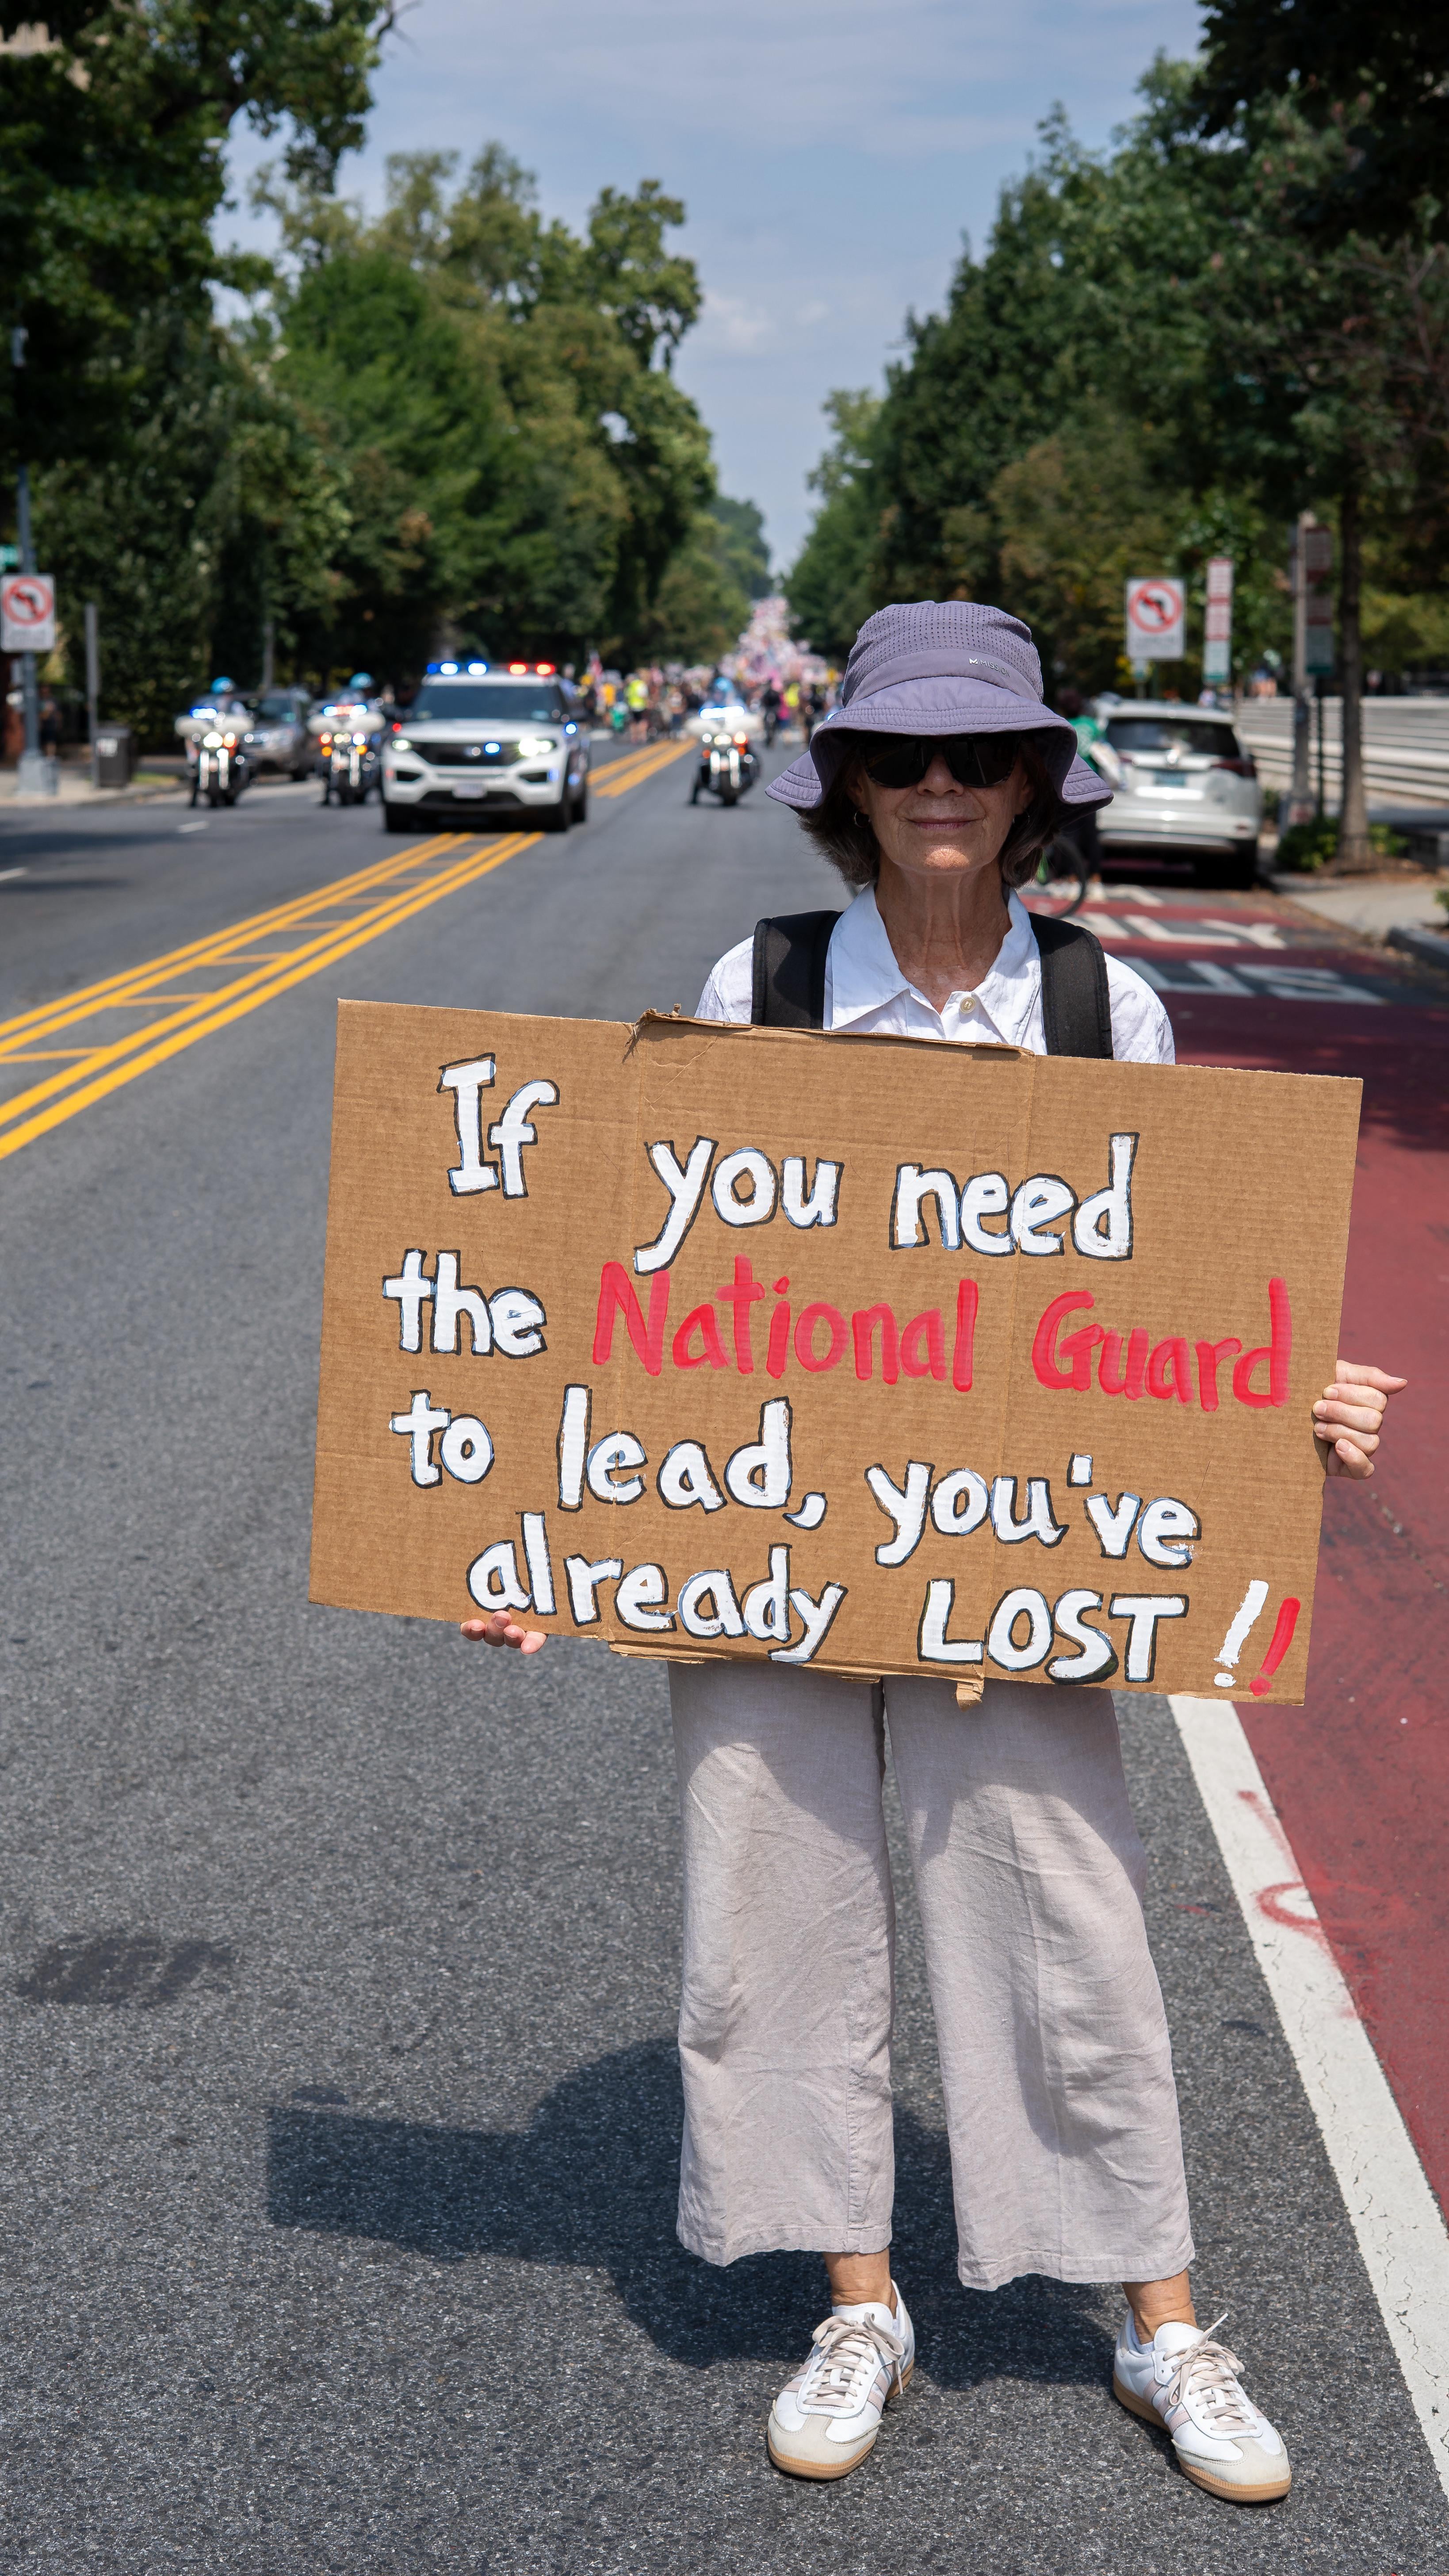 MISSION
If you need
the National Guard
to lead, you've
already LOST!!